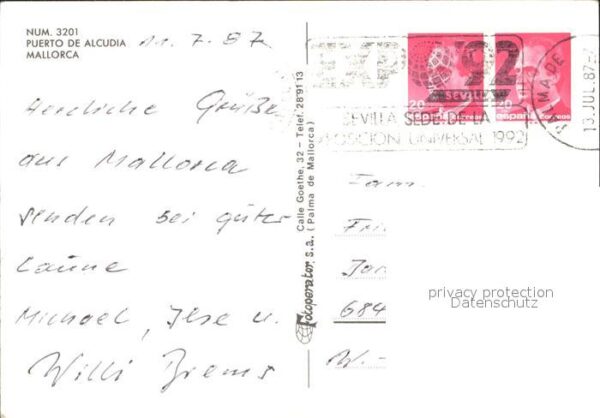 NUM. 3201
PUERTO DE ALCUDIA
MALLORCA
11.7.87
Herzliche Grüße
aus Mallorca
senden bei guter
Laune
Michael, Ilse u.
Willi Brems
Fotoperator, s.a. Calle Goethe, 32 - Telef. 289113
(Palma de Mallorca)
EXPO '92
SEVILLA
SEVILLA SEDE DE LA
EXPOSICION UNIVERSAL 1992
20 españa Correos
20 españa Correos
PALMA DE
13.JUL.87
Fam.
Fri
Jan
684
W.-
privacy protection
Datenschutz